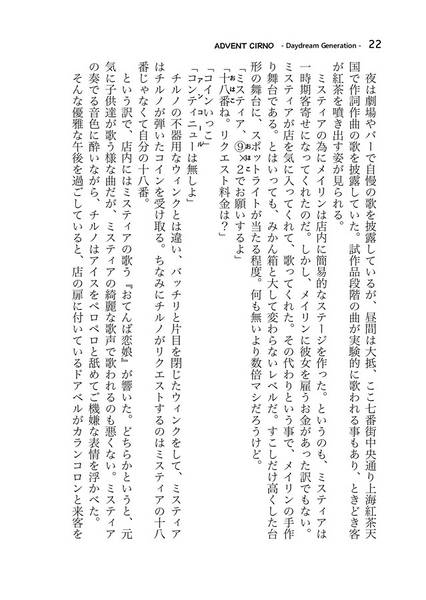 ADVENT CIRNO - Daydream Generation - 22
夜は劇場やバーで自慢の歌を披露しているが、昼間は大抵、ここ七番街中央通り上海紅茶天
国で作詞作曲の歌を披露していた。試作品段階の曲が実験的に歌われる事もあり、ときどき客
が紅茶を噴き出す姿が見られる。
ミスティアの為にメイリンは店内に簡易的なステージを作った。というのも、ミスティアは
一時期客寄せになってくれたのだ。しかし、メイリンに彼女を雇うお金があった訳でもない。
ミスティアが店を気に入ってくれて、歌ってくれた。その代わりという事で、メイリンの手作
り舞台である。とはいっても、みかん箱と大して変わらないレベルだ。すこしだけ高くした台
形の舞台に、スポットライトが当たる程度。何も無いより数倍マシだろうけど。
おはこ
「ミスティア、⑨×2でお願いするよ」
おはこ
「十八番ね。リクエスト料金は?」
「コインいっこ」
アンコール
「コンティニューは無しよ」
チルノの不器用なウィンクとは違い、バッチリと片目を閉じたウィンクをして、ミスティア
はチルノが弾いたコインを受け取る。ちなみにチルノがリクエストするのはミスティアの十八
番じゃなくて自分の十八番。
という訳で、店内にはミスティアの歌う『おてんば恋娘』が響いた。どちらかというと、元
気に子供達が歌う様な曲だが、ミスティアの綺麗な歌声で歌われるのも悪くない。ミスティア
の奏でる音色に酔いながら、チルノはアイスをペロペロと舐めてご機嫌な表情を浮かべた。
そんな優雅な午後を過ごしていると、店の扉に付いているドアベルがカランコロンと来客を